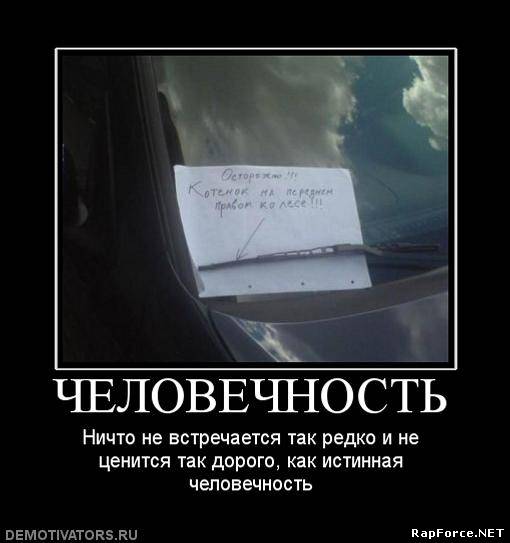 Осторожно!!!
Котенок на переднем
правом колесе!!!
ЧЕЛОВЕЧНОСТЬ
Ничто не встречается так редко и не
ценится так дорого, как истинная
человечность
DEMOTIVATORS.RU
RapForce.NET